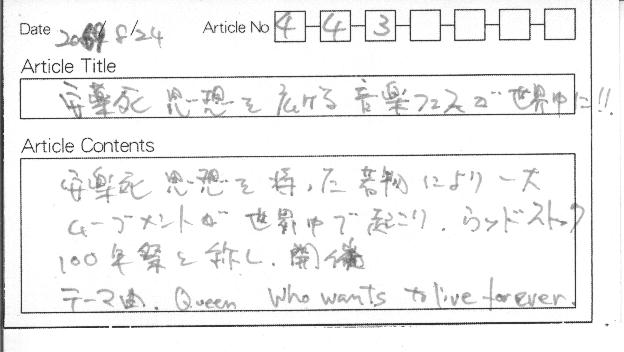 Date 2069/8/24 Article No 4-4-3
Article Title
安楽死思想を広げる音楽フェスが世界中に!!
Article Contents
安楽死思想を持った若物により一大
ムーブメントが世界中で起こり、ウッドストック
100年祭と称し、開催
テーマ曲、Queen Who wants to live forever.